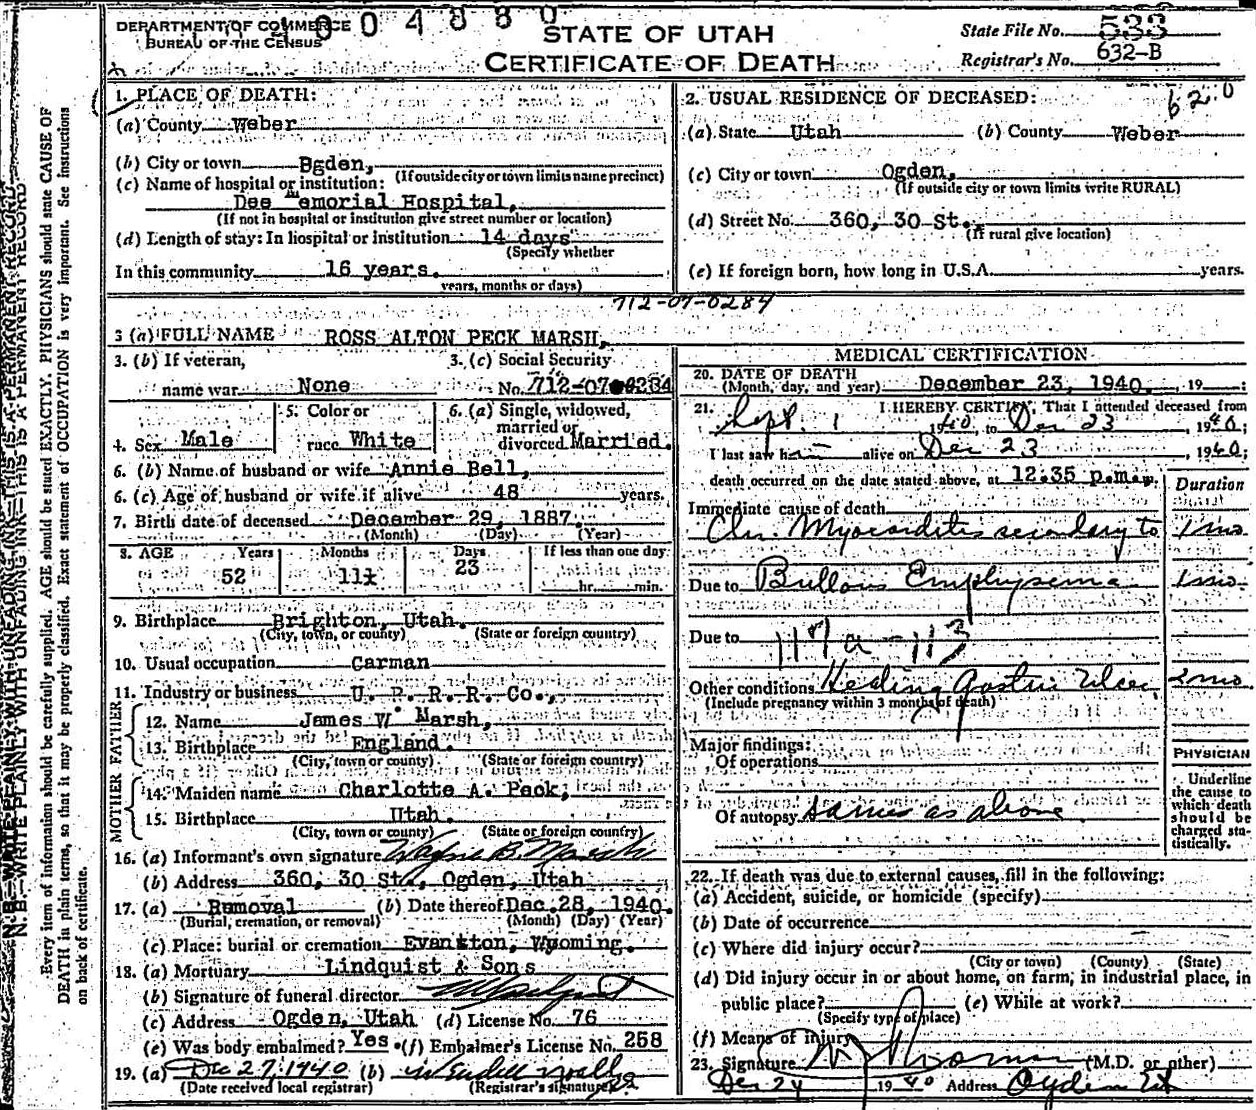 DEPARTMENT OF COMMERCE
BUREAU OF THE CENSUS
1004880
STATE OF UTAH
CERTIFICATE OF DEATH
State File No. 533
Registrar's No. 632-B
1. PLACE OF DEATH:
(a) County Weber
(b) City or town Bgden,
(If outside city or town limits name precinct)
(c) Name of hospital or institution:
Dee Memorial Hospital,
(If not in hospital or institution give street number or location)
(d) Length of stay: In hospital or institution 14 days
(Specify whether
In this community 16 years.
years, months or days)
2. USUAL RESIDENCE OF DECEASED:
620
(a) State Utah (b) County Weber
(c) City or town Ogden,
(If outside city or town limits write RURAL)
(d) Street No. 360, 30 St.
(If rural give location)
(e) If foreign born, how long in U.S.A. years.
712-07-0284
3 (a) FULL NAME ROSS ALTON PECK MARSH,
3. (b) If veteran,
name war None
3. (c) Social Security
No. 712-07-0284
4. Sex Male
5. Color or
race White
6. (a) Single, widowed,
married or
divorced Married.
6. (b) Name of husband or wife Annie Bell,
6. (c) Age of husband or wife if alive 48 years.
7. Birth date of deceased December 29, 1887.
(Month) (Day) (Year)
8. AGE Years Months Days If less than one day
52 11 23 hr. min.
9. Birthplace Brighton, Utah.
(City, town, or county) (State or foreign country)
10. Usual occupation Carman
11. Industry or business U. P. R. R. Co.,
FATHER
12. Name James W. Marsh,
13. Birthplace England.
(City, town or county) (State or foreign country)
MOTHER
14. Maiden name Charlotte A. Peck,
15. Birthplace Utah.
(City, town or county) (State or foreign country)
16. (a) Informant's own signature Wayne B. Marsh
(b) Address 360, 30 St., Ogden, Utah
17. (a) Removal (b) Date thereof Dec. 28, 1940.
(Burial, cremation, or removal) (Month) (Day) (Year)
(c) Place: burial or cremation Evanston, Wyoming.
18. (a) Mortuary Lindquist & Sons
(b) Signature of funeral director
(c) Address Ogden, Utah (d) License No. 76
(e) Was body embalmed? Yes. (f) Embalmer's License No. 258
19. (a) Dec 27, 1940 (b)
(Date received local registrar) (Registrar's signature)
MEDICAL CERTIFICATION
20. DATE OF DEATH
(Month, day, and year) December 23, 1940. , 19
21. I HEREBY CERTIFY, That I attended deceased from
Sept. 1 1940, to Dec 23, 1940;
I last saw h alive on Dec 23, 1940;
death occurred on the date stated above, at 12:35 p.m.
Duration
Immediate cause of death
Chr. Myocarditis secondary to 1 mo.
Due to Bullous Emphysema 1 mo.
Due to
113
Other conditions Healing Gastric Ulcer 2 mo.
(Include pregnancy within 3 months of death)
Major findings:
Of operations
Of autopsy same as above
PHYSICIAN
Underline
the cause to
which death
should be
charged sta-
tistically.
22. If death was due to external causes, fill in the following:
(a) Accident, suicide, or homicide (specify)
(b) Date of occurrence
(c) Where did injury occur?
(City or town) (County) (State)
(d) Did injury occur in or about home, on farm, in industrial place, in
public place? (e) While at work?
(Specify type of place)
(f) Means of injury
23. Signature (M.D. or other)
Dec 24 1940 Address Ogden Ut
N. B.—WRITE PLAINLY WITH UNFADING INK—THIS IS A PERMANENT RECORD
Every item of information should be carefully supplied. AGE should be stated EXACTLY. PHYSICIANS should state CAUSE OF
DEATH in plain terms, so that it may be properly classified. Exact statement of OCCUPATION is very important. See instructions
on back of certificate.